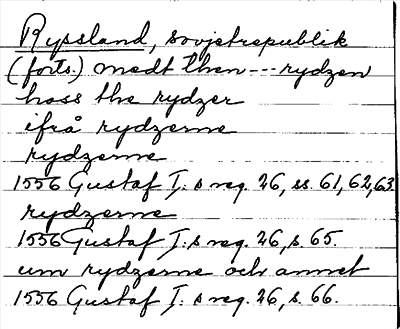 Ryssland, sovjetrepublik
(forts.) medt then --- rydzen
hoss the rydzer
ifrå rydzerne
rydzerne
1556 Gustaf I:s reg. 26, ss. 61, 62, 63.
rydzerne
1556 Gustaf I:s reg. 26, s. 65.
um rydzerne och annet
1556 Gustaf I:s reg. 26, s. 66.